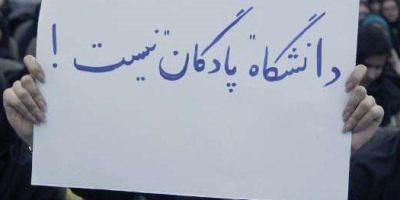 دانشگاه پادگان نیست !